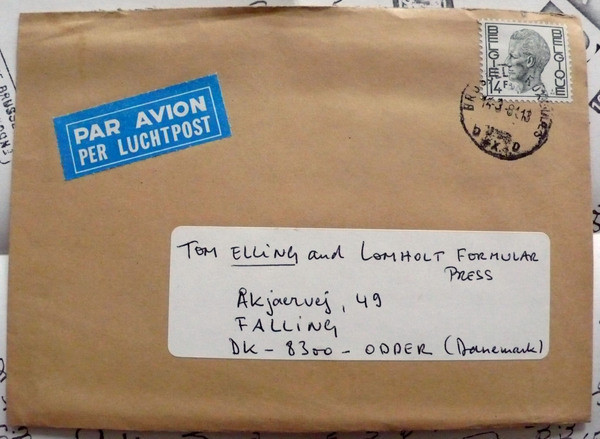 BELGIE BELGIQUE
14F
PAR AVION
PER LUCHTPOST
TOM ELLING and LOMHOLT FORMULAR
PRESS
Akjaervej, 49
FALLING
DK - 8300 - ODDER (Danemark)